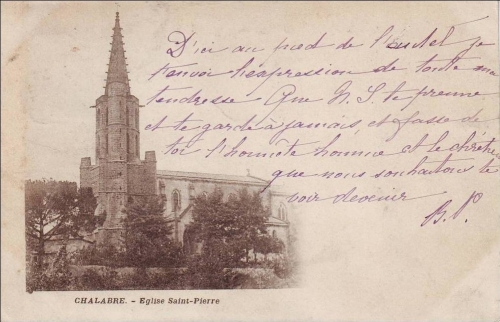 D'ici au pied de l'autel je
t'envoie l'expression de toute ma
tendresse Que N. S. te prenne
et te garde à jamais, et fasse de
toi l'honnête homme et le chrétien
que nous souhaitons te
voir devenir
CHALABRE. - Eglise Saint-Pierre